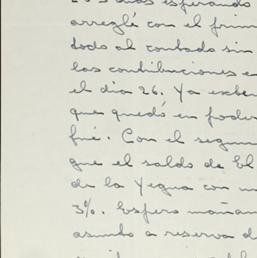 esperando
arreglé con el prim
todo al contado sin
las contribuciones e
el dia 26. Ya exten
que quedó en poder
fué. Con el segun
que el saldo de El
de la Yegua con u
3%. Espero mañan
asunto a reserva d